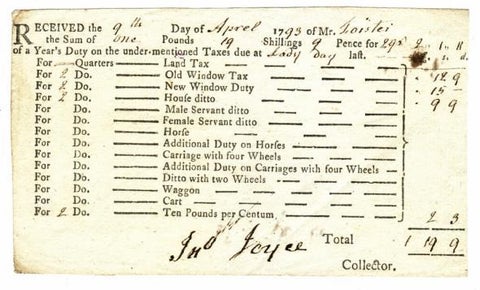 RECEIVED the 9th Day of Aprel 1793 of Mr.
the Sum of one Pounds 19 Shillings 9 Pence for 2 qrs
of a Year's Duty on the under-mentioned Taxes due at Lady Day last.
For — Quarters — Land Tax —
For 2 Do. — Old Window Tax — 12 9
For 2 Do. — New Window Duty — 15 -
For 2 Do. — House ditto — 9 9
For Do. — Male Servant ditto —
For Do. — Female Servant ditto —
For Do. — Horse —
For Do. — Additional Duty on Horses —
For Do. — Carriage with four Wheels —
For Do. — Additional Duty on Carriages with four Wheels —
For Do. — Ditto with two Wheels —
For Do. — Waggon —
For Do. — Cart —
For 2 Do. — Ten Pounds per Centum, — 2 3
Jno Joyce Total 1 19 9
Collector.